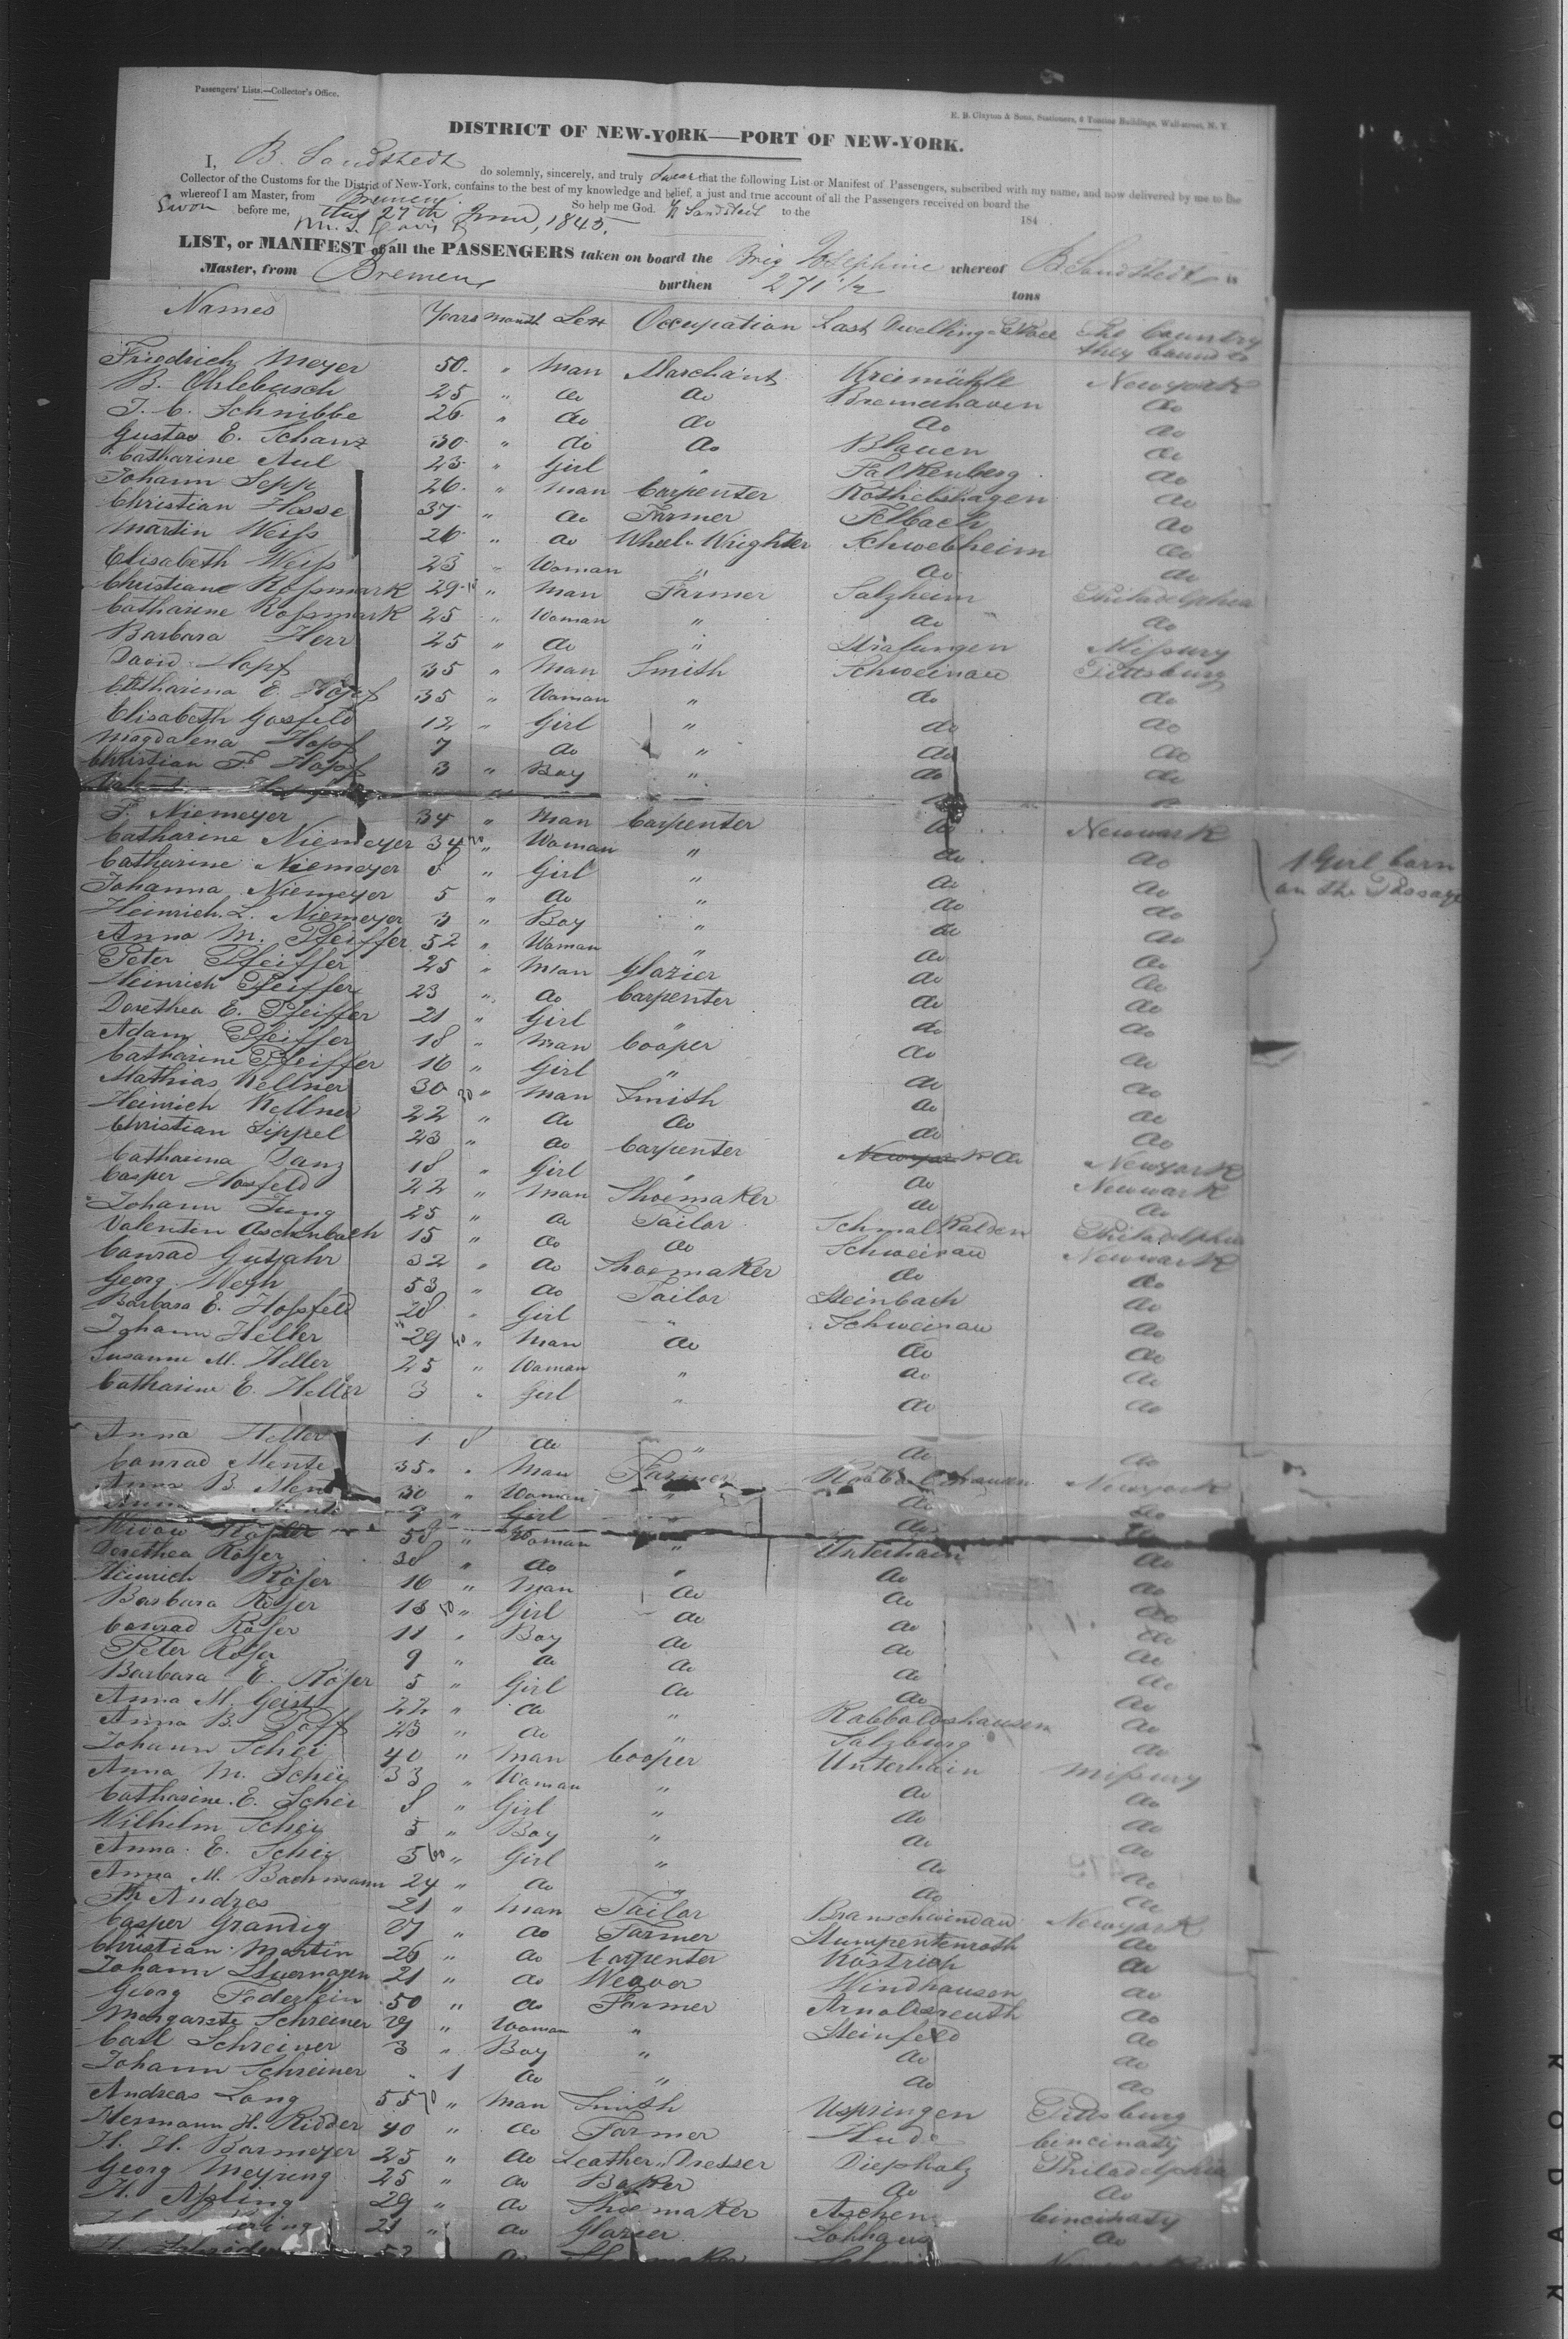 Passengers' Lists.—Collector's Office.
E. B. Clayton & Sons, Stationers, 6 Tontine Buildings, Wall-street, N. Y.
DISTRICT OF NEW-YORK—PORT OF NEW-YORK.
I, B. Sandstedt do solemnly, sincerely, and truly Swear that the following List or Manifest of Passengers, subscribed with my name, and now delivered by me to the
Collector of the Customs for the District of New-York, contains to the best of my knowledge and belief, a just and true account of all the Passengers received on board the
whereof I am Master, from Bremen. So help me God. B Sandstedt
Sworn before me, this 27th June, 1845. to the 184
LIST, or MANIFEST of all the PASSENGERS taken on board the Brig Josephine whereof B Sandstedt is
Master, from Bremen burthen 271 1/2 tons
Names Years Month Sex Occupation Last Dwelling Place The Country they bound to
Friedrich Meyer 50 " Man Marchant Kreimühle Newyork
B. Ohlebusch 25 " do do Bremerhaven do
J. C. Schnibbe 26 " do do do do
Gustav E. Schanz 30 " do do Blauen do
Catharine Aul 23 " Girl " Falkenberg do
Johann Sepp 26 " Man Carpenter Rothelshagen do
Christian Hosse 37 " do Farmer Felbach do
Martin Weiss 26 " do Wheel Wrighter Schwebheim do
Elisabeth Weiss 23 " Woman " do do
Christiane Rossmark 29 " Man Farmer Salzheim Philadelphia
Catharine Rossmark 25 " Woman " do do
Barbara Herr 25 " do " Strafungen Missury
David Hopf 35 " Man Smith Schweinau Pittsburg
Catharina E. Hopf 35 " Woman " do do
Elisabeth Gosfeld 12 " Girl " do do
Magdalena Hopf 7 do " do do
Christian F. Hopf 3 " Boy " do do
F. Niemeyer 34 " Man Carpenter do Newwark
Catharine Niemeyer 34 " Woman " do do
Catharine Niemeyer 8 " Girl " do do
1 Girl born
on the Passage
Johanna Niemeyer 5 " do " do do
Heinrich L. Niemeyer 3 " Boy " do do
Anna M. Pfeiffer 52 " Woman " do do
Peter Pfeiffer 25 " Man Glazier do do
Heinrich Pfeiffer 23 " do Carpenter do do
Dorethea E. Pfeiffer 21 " Girl " do do
Adam Pfeiffer 18 " Man Cooper do do
Catharine Pfeiffer 16 " Girl " do do
Mathias Kellner 30 " Man Smith do do
Heinrich Kellner 22 " do do do do
Christian Lippel 23 " do Carpenter Newyork do Newyork
Catharina Danz 18 " Girl " do Newwark
Casper Hosfeld 22 " Man Shoemaker do do
Johann Jung 25 " do Tailor Schmalkalden Philadelphia
Valentin Aschenbach 15 " do do Schweinau Newwark
Conrad Gutjahr 32 " do Shoemaker do do
Georg Wegh 53 " do Tailor Steinbach do
Barbara E. Hossfeld 28 " Girl " Schweinau do
Johann Heller 29 " Man do do do
Susanne M. Heller 25 " Woman " do do
Catharine E. Heller 3 " Girl " do do
Anna Heller 1 8 do " do do
Conrad Mente 35 " Man Farmer Newyork
Anna B. Mente 30 " Woman " do do
Anna Mente 9 " Girl " do do
Widow Röser 58 " Woman " Unterhain do
Dorethea Röser 38 " do " do do
Heinrich Röser 16 " Man do do do
Barbara Röser 13 " Girl do do do
Conrad Röser 11 " Boy do do do
Peter Röser 9 " do do do do
Barbara E. Röser 5 " Girl do do do
Anna M. Geist 22 " do " Rabboldshausen do
Anna B. Pfaff 23 " do " Salzburg do
Johann Schei 40 " Man Cooper Unterhain Missury
Anna M. Schei 33 " Woman " do do
Catharine E. Schei 8 " Girl " do do
Wilhelm Schei 5 " Boy " do do
Anna E. Schei 3 " Girl " do do
Anna M. Bachmann 24 " do " do do
Andres 21 " Man Tailor Branschwindau Newyork
Casper Grandig 27 " do Farmer Stumpentenroth do
Christian Martin 26 " do Carpenter Köstrich do
Johann Stuernagen 21 " do Weaver Windhausen do
Georg Federlein 50 " do Farmer Arnoldsreuth do
Margarete Schreiner 29 " Woman " Steinfeld do
Carl Schreiner 3 " Boy " do do
Johann Schreiner " 1 do " do do
Andreas Lang 55 " Man Smith Uspringen Pittsburg
Hermann H. Ridder 40 " do Farmer Hude Cincinaty
H. H. Barmeyer 25 " do Leather Dresser Diepholz Philadelphia
Georg Meyring 25 " do Baker do do
H. Apling 29 " do Shoemaker Aschen Cincinaty
21 " do Glazier Lohhaus do
H. Schröder 52 do Shoemaker
KODAK